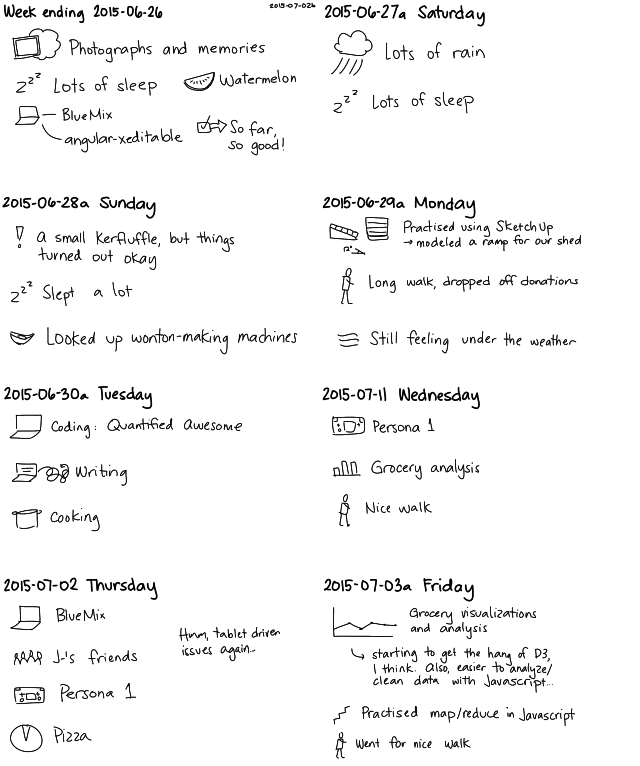 Week ending 2015-06-26
2015-07-02b
Photographs and memories
zzz Lots of sleep
Watermelon
BlueMix
angular-xeditable
So far,
so good!
2015-06-27a Saturday
Lots of rain
zzz Lots of sleep
2015-06-28a Sunday
! a small kerfluffle, but things
turned out okay
zzz Slept a lot
Looked up wonton-making machines
2015-06-29a Monday
Practised using SketchUp
→ modeled a ramp for our shed
12°
Long walk, dropped off donations
Still feeling under the weather
2015-06-30a Tuesday
Coding: Quantified Awesome
Writing
Cooking
2015-07-11 Wednesday
Persona 1
Grocery analysis
Nice walk
2015-07-02 Thursday
BlueMix
J-'s friends
Hmm, tablet driver
issues again...
Persona 1
Pizza
2015-07-03a Friday
Grocery visualizations
and analysis
starting to get the hang of D3,
I think. Also, easier to analyze/
clean data with Javascript...
Practised map/reduce in Javascript
Went for nice walk